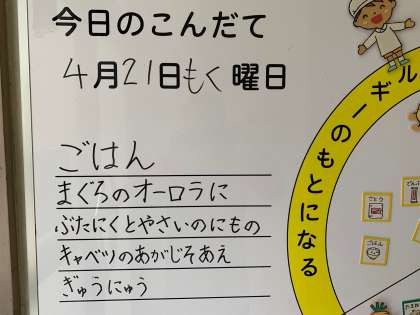 今日のこんだて
4月21日もく曜日
ごはん
まぐろのオーロラに
ぶたにくとやさいのにもの
キャベツのあかじそあえ
ぎゅうにゅう
ギーのもとになる
さとう
ごはん